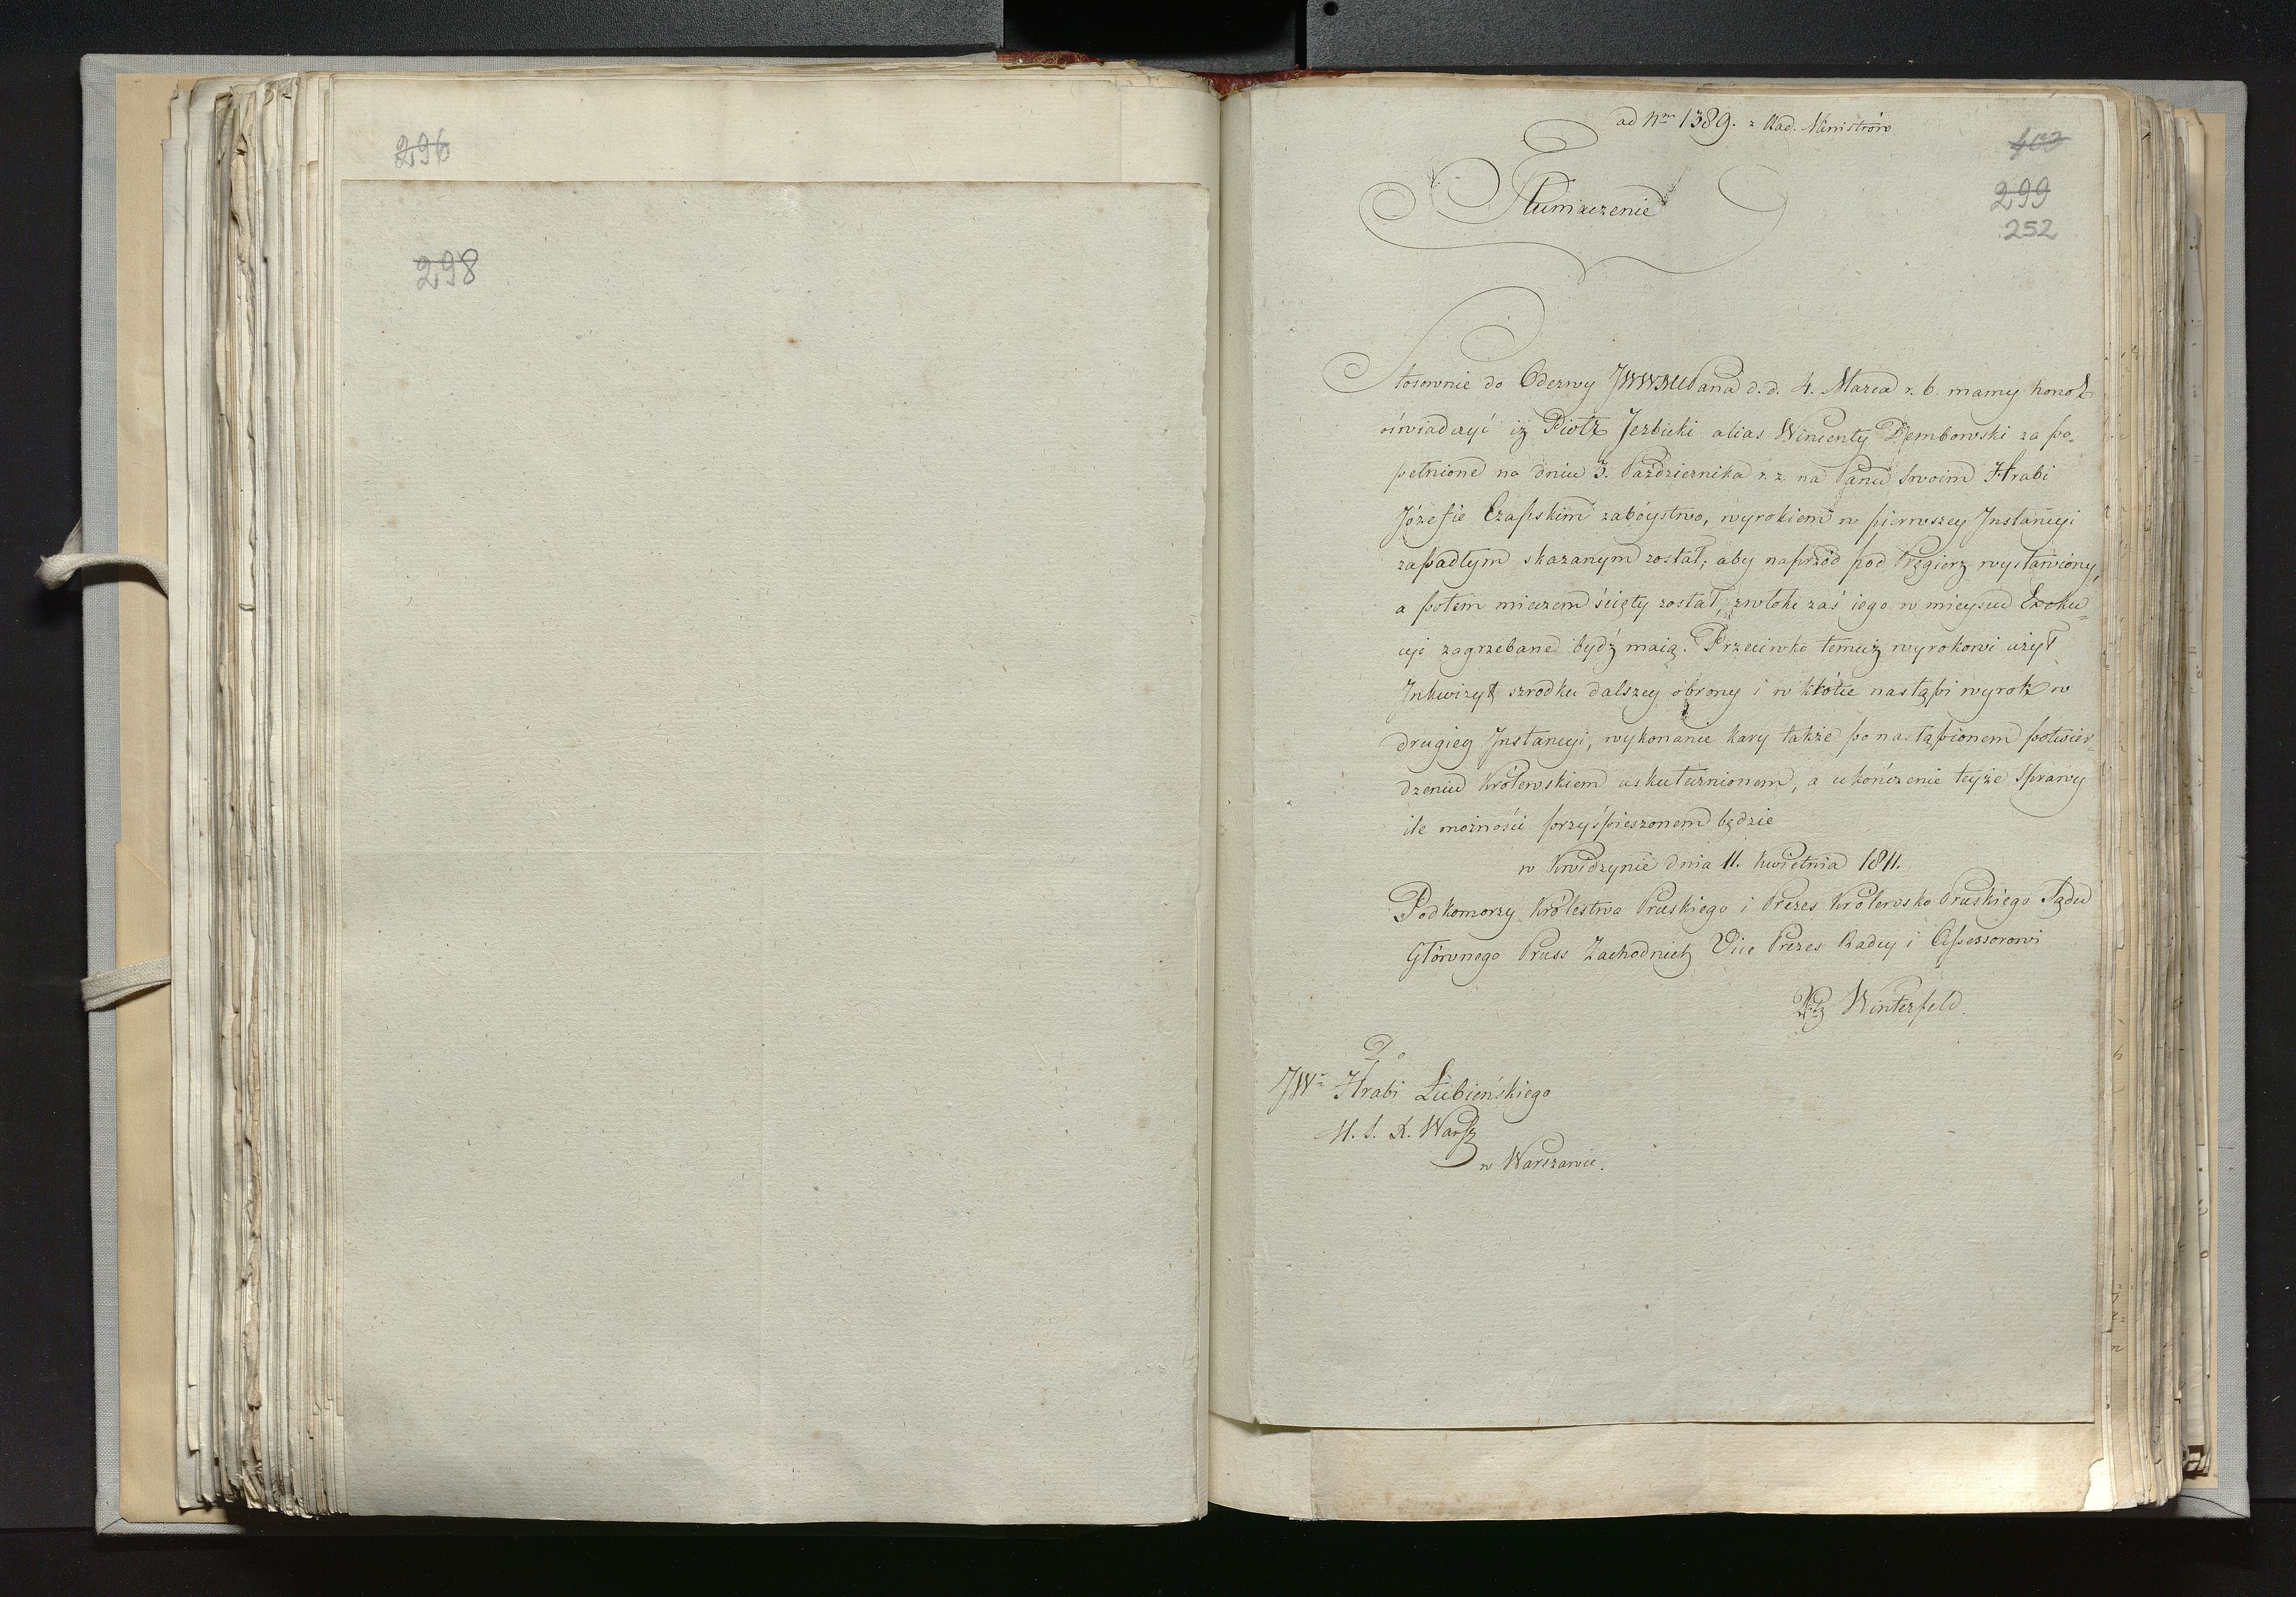 296
298
ad Nrm 1389. z Rad. Ministrów
402
299
252
Tłumaczenie
Stosownie do Odezwy JWWMPana d. d. 4. Marca r. b. mamy honor
oświadczyć iż Piotr Jezbicki alias Wincenty Dembowski za po-
pełnione na dniu 3. Października r. z. na Panu Swoim Hrabi
Józefie Czapskim zabóystwo, wyrokiem w pierwszey Instancyi
zapadłym skazanym został; aby naprzód pod Pręgierz wystawiony,
a potem mieczem ścięty został, zwłoki zaś iego w mieyscu Exeku-
cyi zagrzebane bydź maią. Przeciwko temuż wyrokowi użył
Inkwizyt szrodku dalszey obrony i w krótce nastąpi wyrok w
drugiey Instancyi, wykonanie kary także po nastąpionem potwier-
dzeniu Królewskiem uskutecznionem, a ukończenie teyże Sprawy
ile możności przyśpieszonem będzie
w Kwidzynie dnia 11. kwietnia 1811.
Podkomorzy Królestwa Pruskiego i Prezes Królewsko Pruskiego Sądu
Głównego Pruss Zachodnich Vice Prezes Radcy i Assessorowi
Winterfeld.
Do
JWo Hrabi Łubieńskiego
M. S. X. Warsz
w Warszawie.